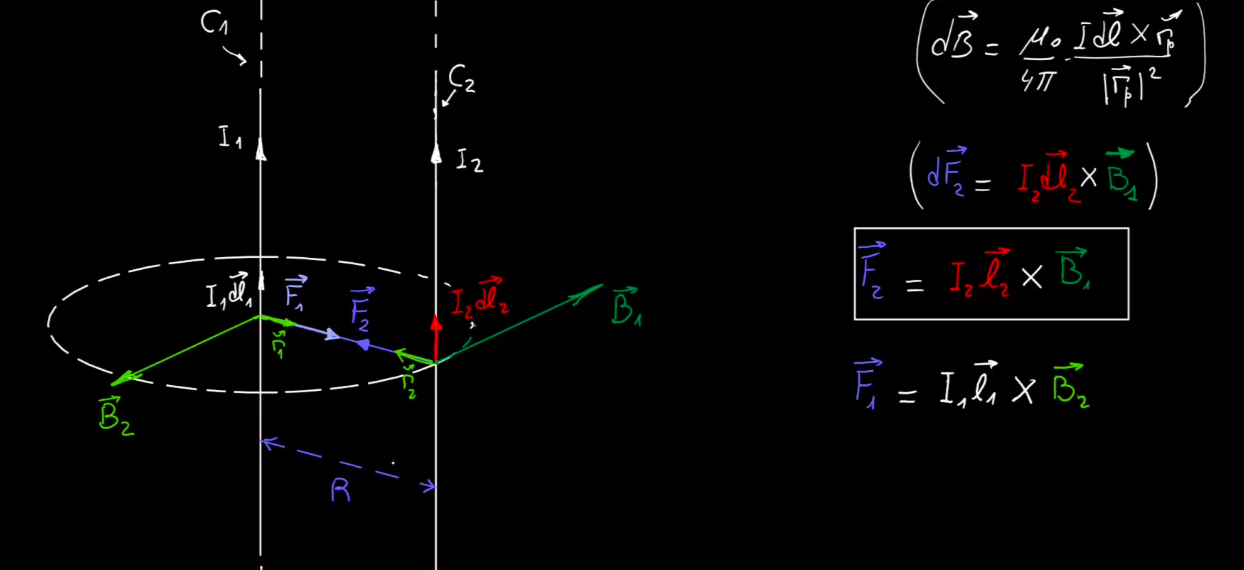 C₁
C₂
I₁
I₂
I₁d\vec{l}₁
\vec{F}₁
\vec{F}₂
I₂d\vec{l}₂
\vec{B}₁
\vec{r}₁
\vec{r}₂
\vec{B}₂
R
(d\vec{B} = \frac{μ₀}{4π} · \frac{I d\vec{l} × \vec{r}_p}{|\vec{r}_p|^2})
(d\vec{F}₂ = I₂d\vec{l}₂ × \vec{B}₁)
\vec{F}₂ = I₂\vec{l}₂ × \vec{B}₁
\vec{F}₁ = I₁\vec{l}₁ × \vec{B}₂